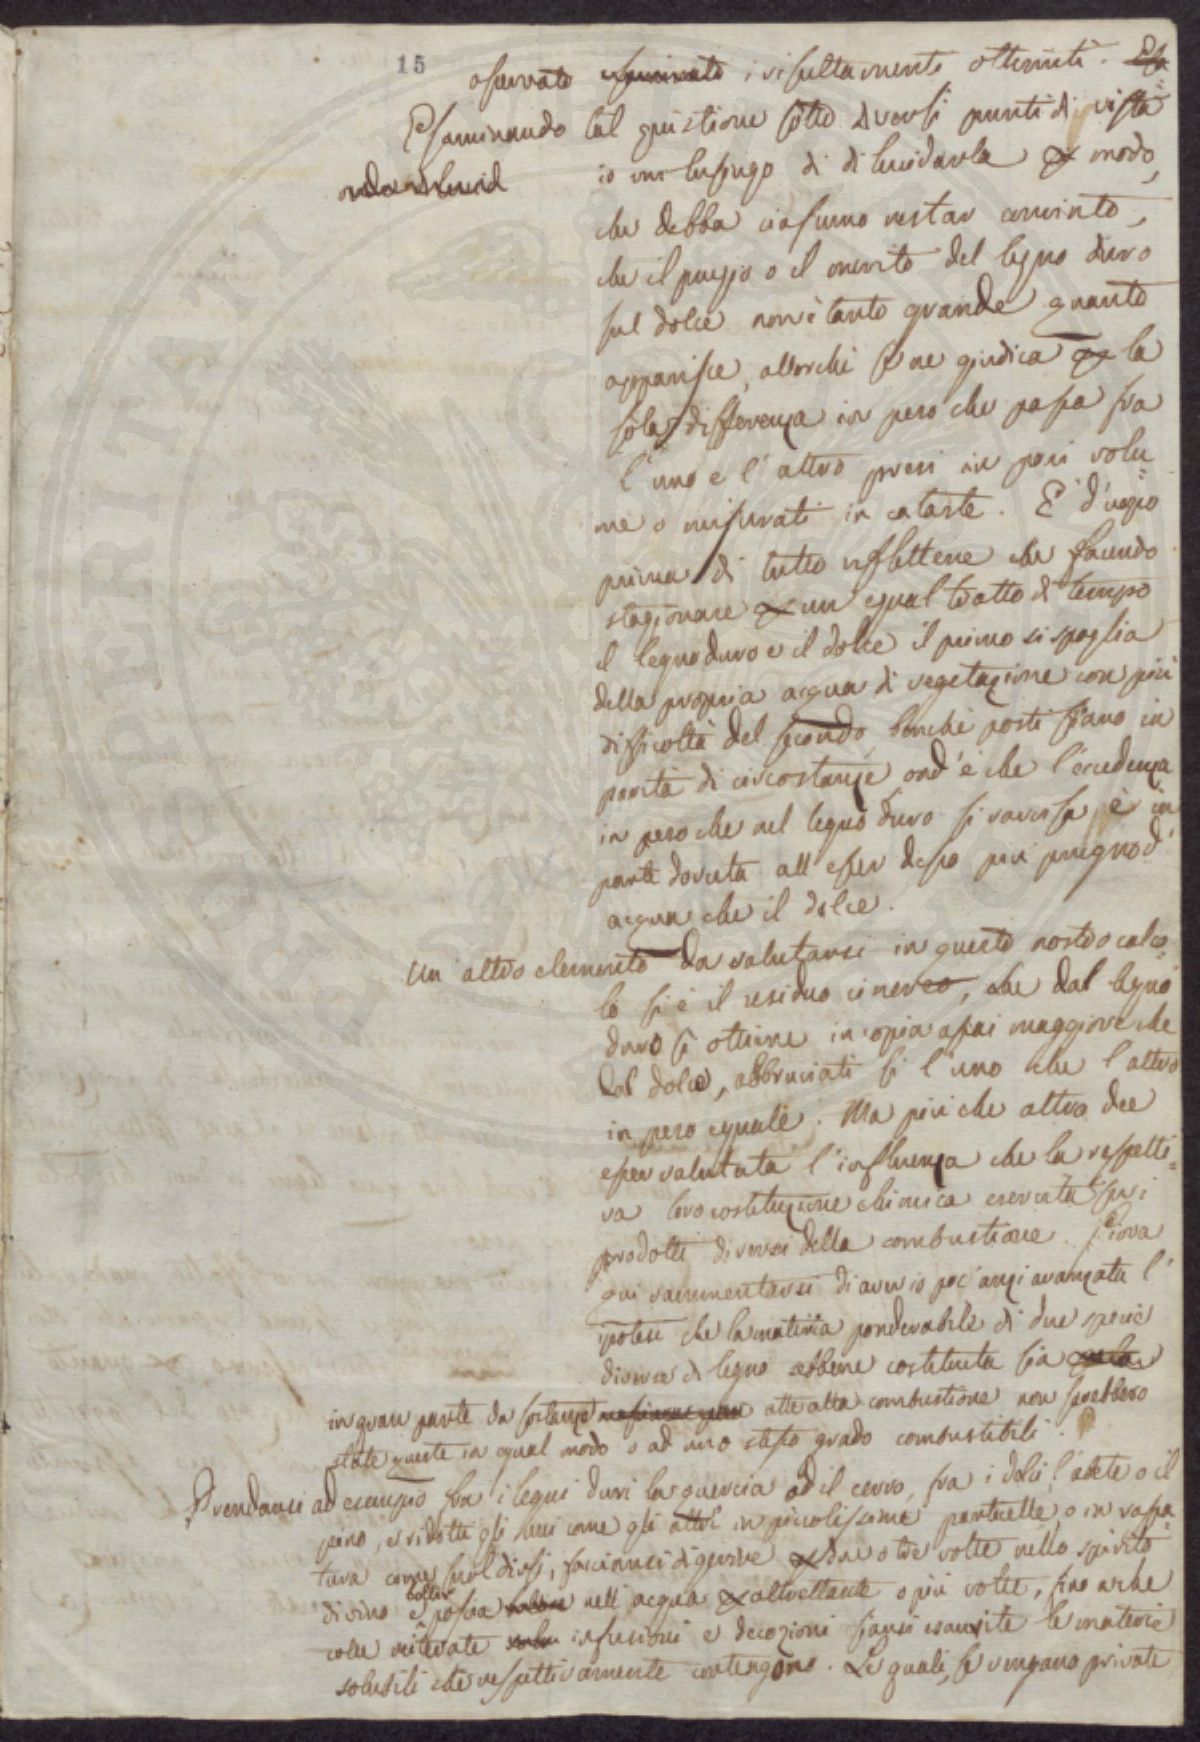 15
osservato esaminato i risultamenti ottenuti. Esa
Esaminando tal quistione sotto diversi punti di vista
onde dilucid io mi lusingo di dilucidarla per modo,
che debba ciascuno restar convinto,
che il pregio o il merito del legno duro
sul dolce non è tanto grande quanto
apparisce, allorchè se ne giudica per la
sola differenza in peso che passa fra
l'uno e l'altro presi in pari volu=
me o misurati in cataste. E' d'uopo
prima di tutto riflettere che facendo
stagionare per un egual tratto di tempo
il legno duro e il dolce il primo si spoglia
della propria acqua di vegetazione con più
difficoltà del secondo, benchè posti siano in
parità di circostanze ond'è che l'eccedenza
in peso che nel legno duro si ravvisa, è in
parte dovuta all esser desso più pregno d'
acqua che il dolce.
Un altro elemento da valutarsi in questo nostro calco=
lo si è il residuo cinereo, che dal legno
duro si ottiene in copia assai maggiore che
dal dolce, abbruciati sì l'uno che l'altro
in peso eguale. Ma più che altro dee
esser valutata l'influenza che la rispetti=
va loro costituzione chimica esercita sui
prodotti diversi della combustione. Giova
qui rammentarsi di aver io poc'anzi avanzata l'
ipotesi che la materia ponderabile di due specie
diverse di legno sebbene costituita sia
in gran parte da sostanze atte alla combustione non sarebbero
state queste in egual modo o ad uno stesso grado combustibili.
Prendansi ad esempio fra i legni duri la quercia ed il cerro, fra i dolci l'abete o il
pino, e ridotti gli uni come gli altri in piccolissime particelle, o in raspa=
tura come suol dirsi, facciansi digerire per due o tre volte nello spirito
di vino e possia bollire nell'acqua per altrettante o più volte, sino a che
colle reiterate infusioni e decozioni siansi esaurite le materie
solubili che respettivamente contengono. Le quali, se vengano private